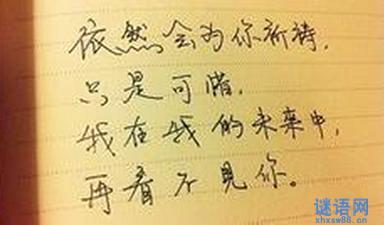 依然会为你祈祷，
只是可惜，
我在我的未来中，
再看不見你。
谜语网
xhxsw88.cn